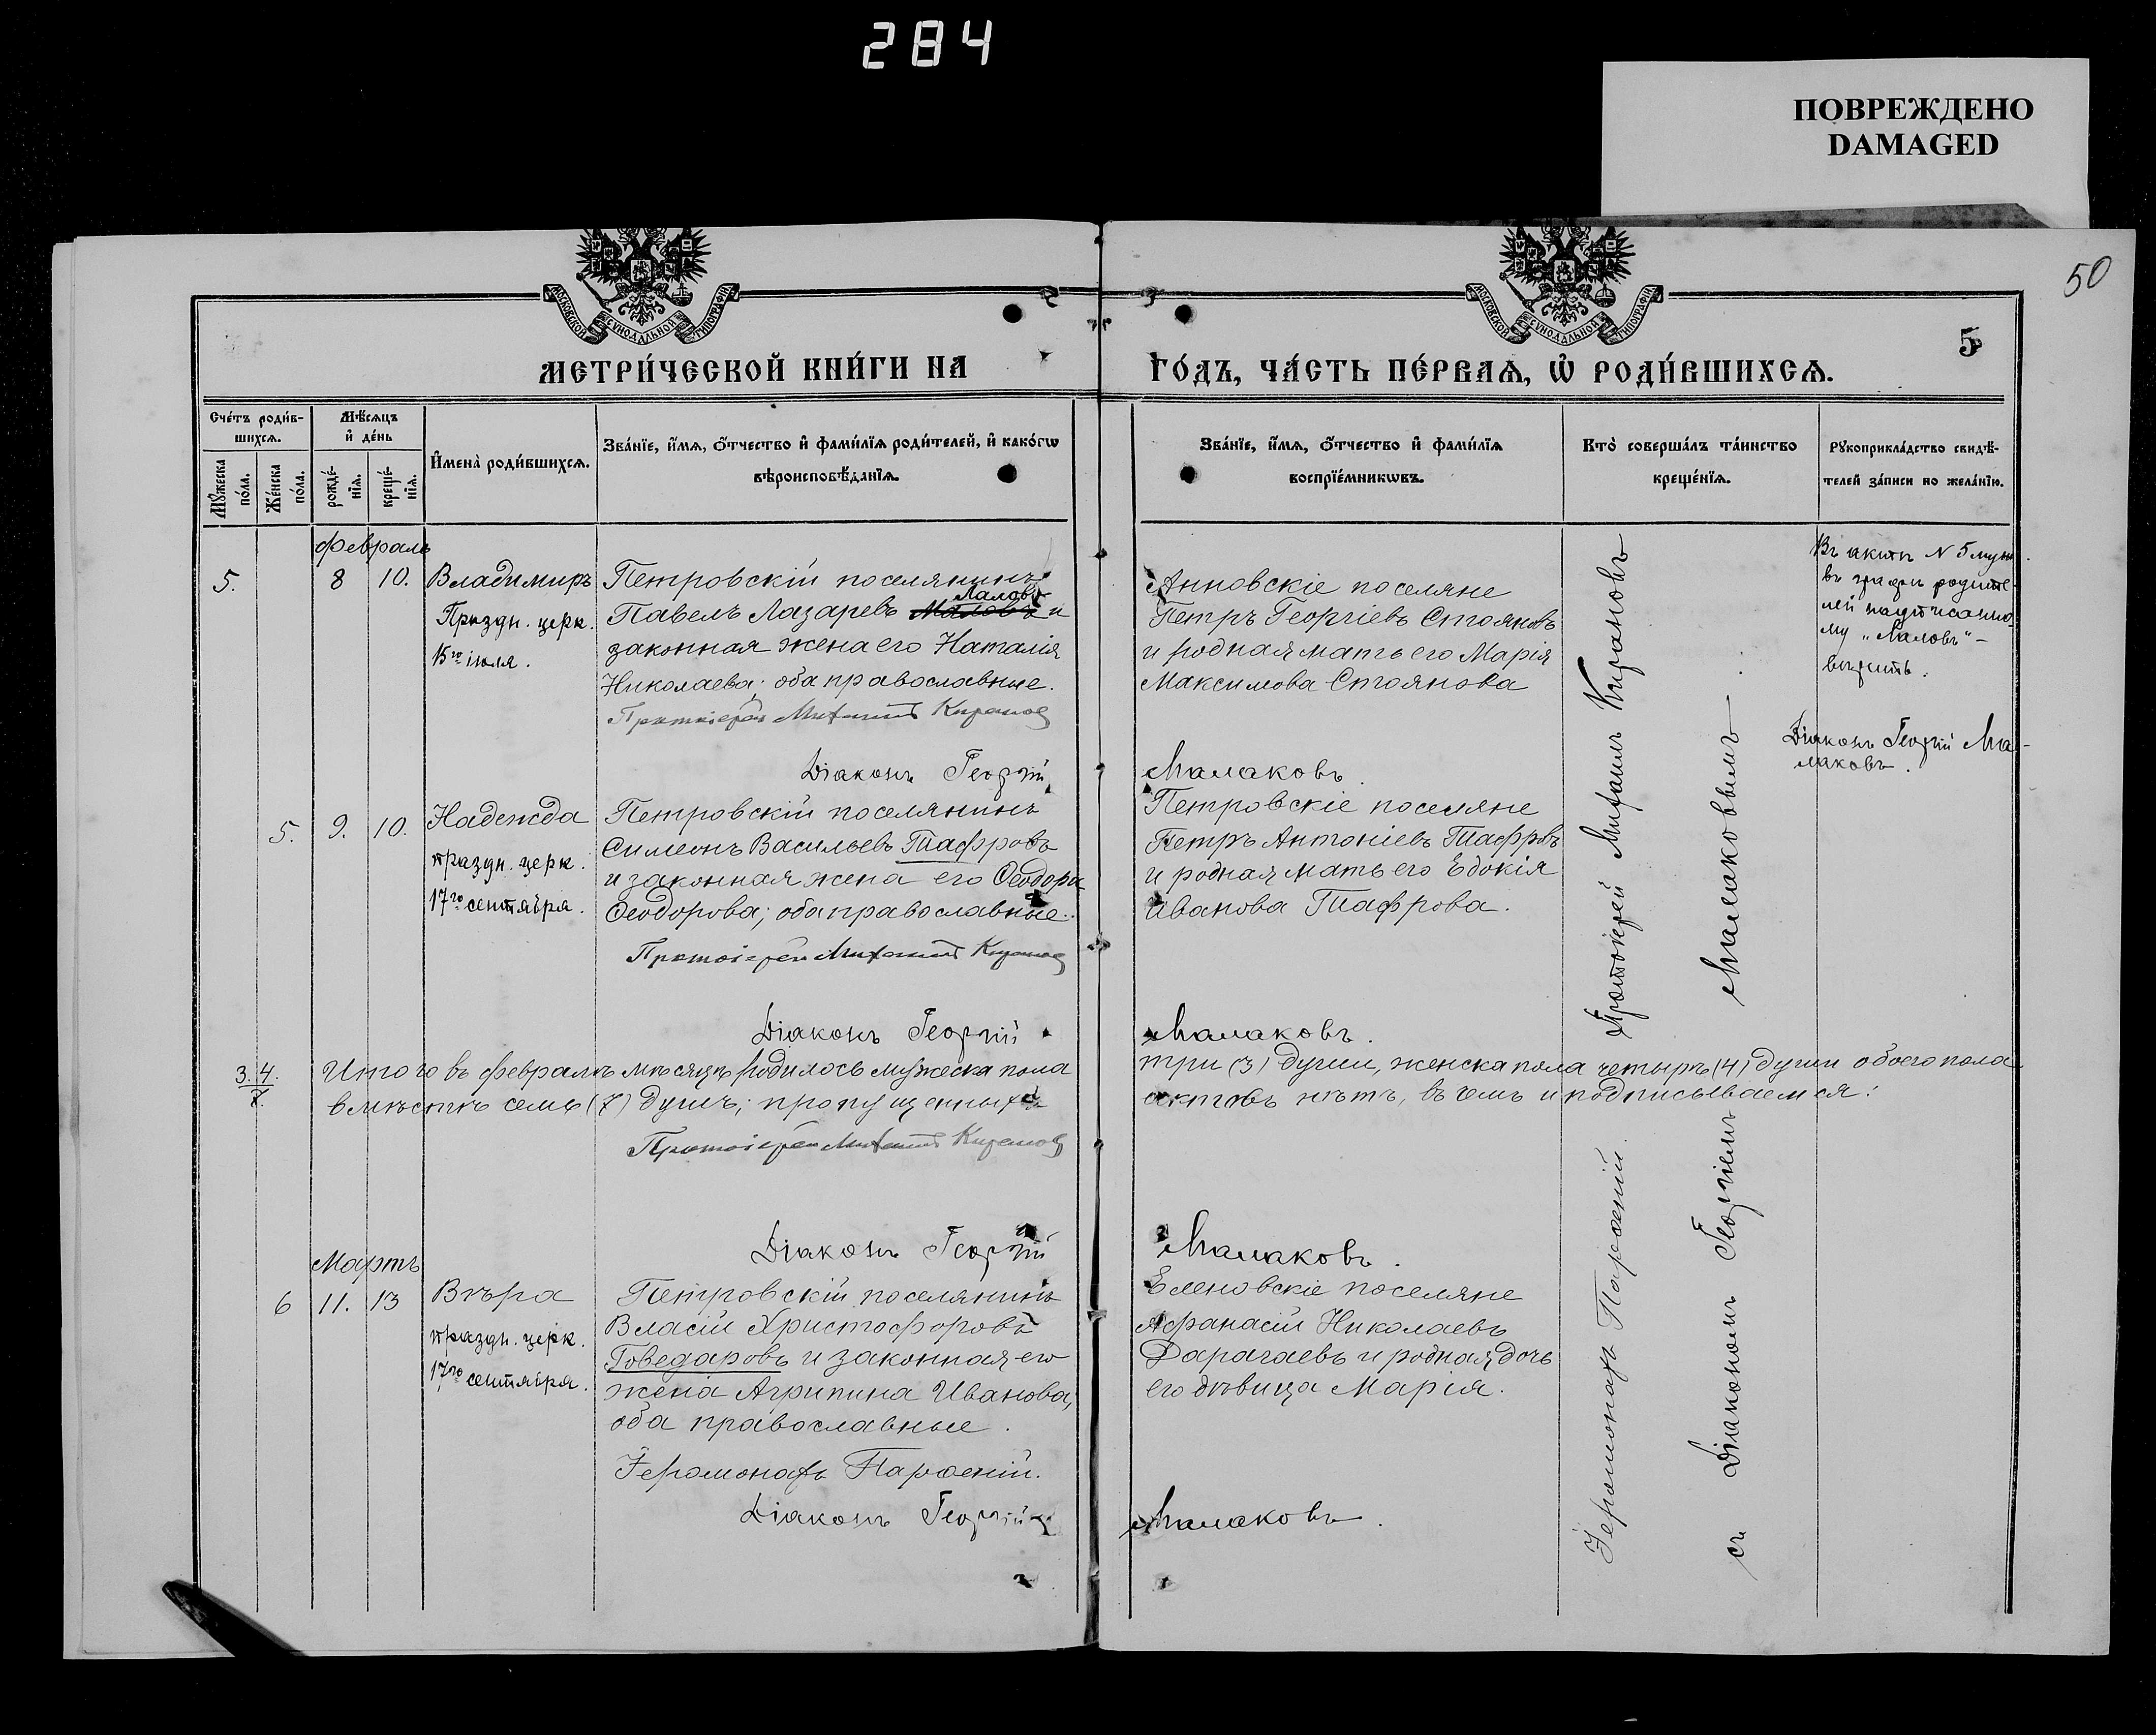 284
ПОВРЕЖДЕНО
DAMAGED
50
МОСКОВСКОЙ СѴНОДАЛЬНОЙ ТИПОГРАФІИ
МОСКОВСКОЙ СѴНОДАЛЬНОЙ ТИПОГРАФІИ
5
МЕТРИ́ЧЕСКОЙ КНИ́ГИ НА
ГО́ДЪ, ЧА́СТЬ ПЕ́РВАѦ, Ѡ҆ РОДИ́ВШИХСѦ.
Сче́тъ роди́в-
шихсѧ.
Мѣ́сѧцъ
и҆ де́нь
Мꙋ́жеска
по́ла.
Же́нска
по́ла.
рожде́-
нїѧ.
креще́-
нїѧ.
И҆мена̀ роди́вшихсѧ.
Зва́нїе, и҆́мѧ, ѻ҆́тчество и҆ фами́лїѧ роди́телей, и҆ како́гѡ
вѣроисповѣ́данїѧ.
Зва́нїе, и҆́мѧ, ѻ҆́тчество и҆ фами́лїѧ
воспрїе́мникѡвъ.
Кто̀ соверша́лъ та́инство
креще́нїѧ.
Рꙋкоприкла́дство свидѣ́-
телей за́писи по жела́нїю.
Февраль
5. 8 10. Владимиръ
Праздн. церк.
15го іюля.
Петровскій поселянинъ
Лаловъ
Павелъ Лазаревъ Маловъ и
законная жена его Наталія
Николаева; оба православные.
Протоіерей Михаилъ Кирановъ
Діаконъ Георгій
Анновскіе поселяне
Петръ Георгіевъ Стояновъ
и родная мать его Марія
Максимова Стоянова
Малаковъ.
Въ актѣ № 5 муж.
въ графѣ родите-
лей надписанно-
му „Лаловъ“ –
вѣрить.
Діаконъ Георгій Ма-
лаковъ.
5. 9. 10. Надежда
праздн. церк.
17го сентября.
Петровскій поселянинъ
Симеонъ Васильевъ Тафровъ
и законная жена его Ѳеодора
Ѳеодорова; оба православные.
Протоіерей Михаилъ Кирановъ
Діаконъ Георгій
Петровскіе поселяне
Петръ Антоніевъ Тафровъ
и родная мать его Евдокія
Иванова Тафрова.
Малаковъ.
Протоіерей Михаилъ Кирановъ
3. 4.
7.
Итого въ февралѣ мѣсяцѣ родилось мужеска пола
три (3) души, женска пола четырѣ (4) души обоего пола
вмѣстѣ семь (7) душъ; пропущенныхъ
актовъ нѣтъ, въ чемъ и подписываемся:
Протоіерей Михаилъ Кирановъ
Діаконъ Георгій
Малаковъ.
Мартъ
6 11. 13 Вѣра
праздн. церк.
17го сентября.
Петровскій поселянинъ
Власій Христофоровъ
Говедаровъ и законная его
жена Агрипина Иванова,
оба православные.
Іеромонахъ Парѳеній.
Діаконъ Георгій
Еленовскіе поселяне
Афанасій Николаевъ
Дарагаевъ и родная дочь
его дѣвица Марія.
Малаковъ.
Іеромонахъ Парѳеній.
съ Діакономъ Георгіемъ Малаковымъ